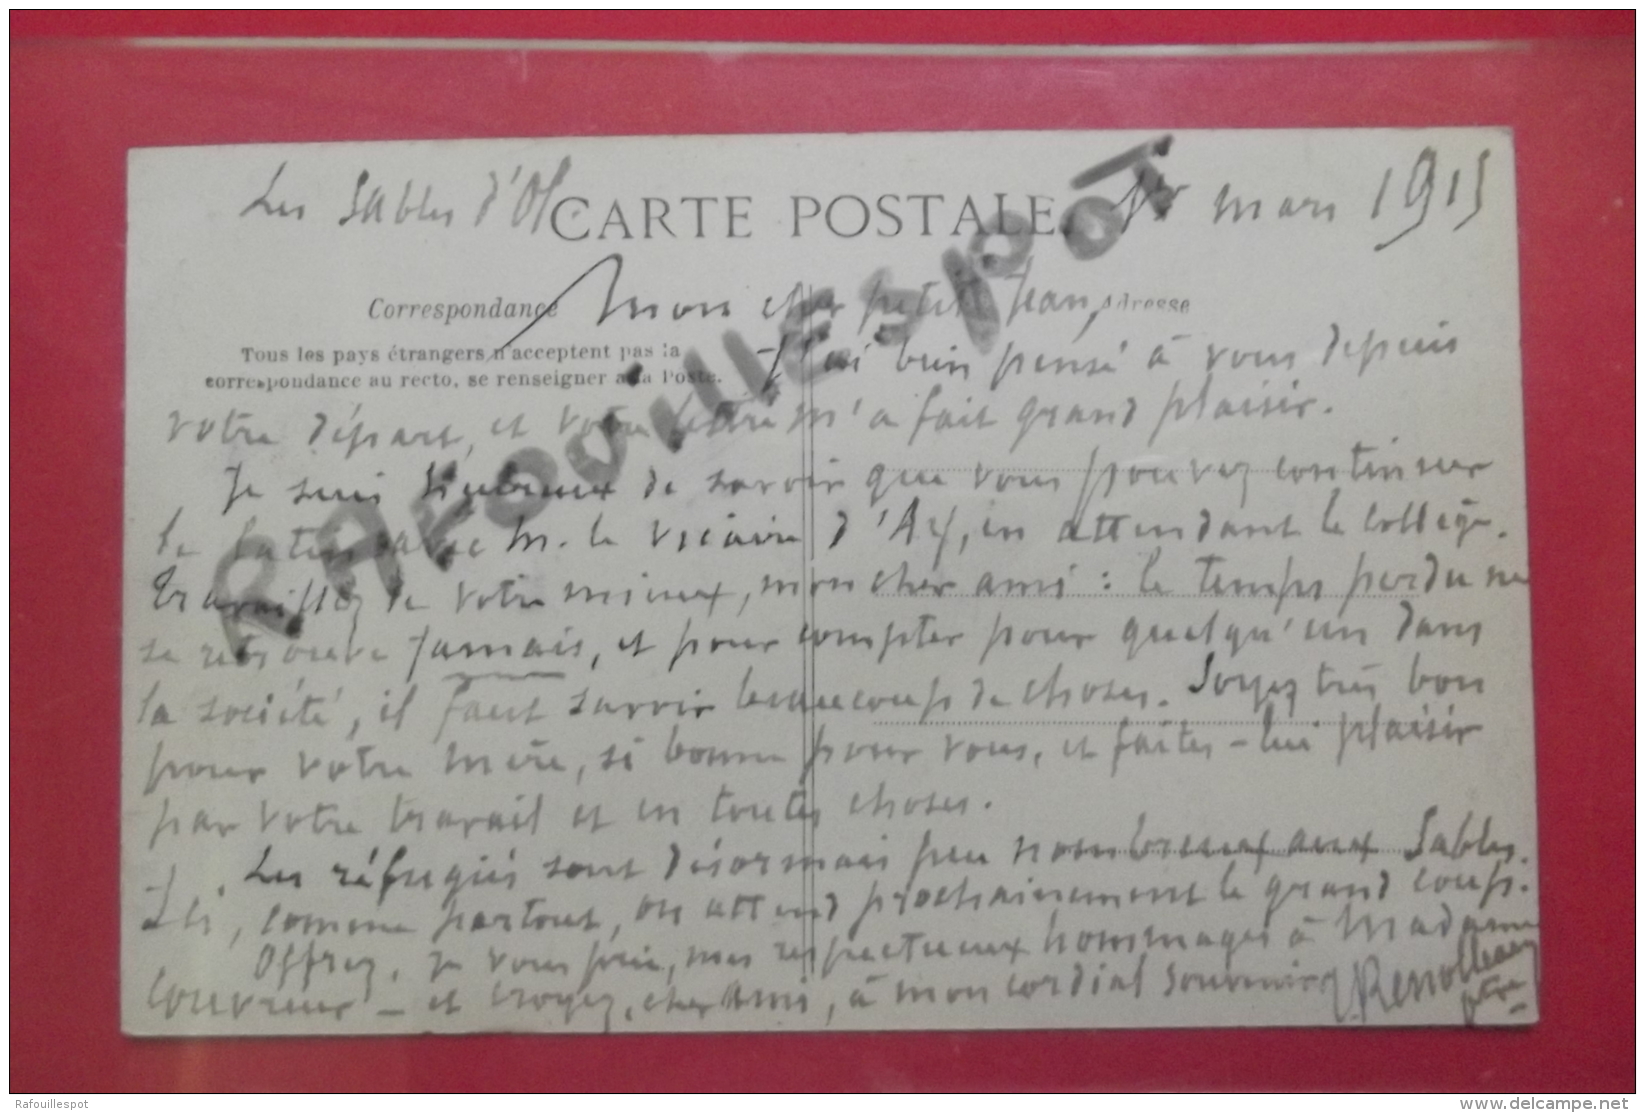 Les Sables d'Ol. CARTE POSTALE 1er mars 1915
Correspondance Mon cher petit Jean, Adresse
Tous les pays étrangers n'acceptent pas la
correspondance au recto, se renseigner à la Poste.
J'ai bien pensé à vous depuis
votre départ, et votre lettre m'a fait grand plaisir.
Je suis heureux de savoir que vous pouvez continuer
le latin avec M. le vicaire d'Ay, en attendant le collège.
Travaillez de votre mieux, mon cher ami : le temps perdu ne
se retrouve jamais, et pour compter pour quelqu'un dans
la société, il faut savoir beaucoup de choses. Soyez très bon
pour votre mère, si bonne pour vous, et faites-lui plaisir
par votre travail et en toutes choses.
Les réfugiés sont désormais peu nombreux aux Sables.
Ici, comme partout, on attend prochainement le grand coup.
Offrez, je vous prie, mes respectueux hommages à Madame
Couvreur - et croyez, cher ami, à mon cordial souvenir.
Renolleau
ptre
RAFOUILLESPOT
Rafouillespot
www.delcampe.net